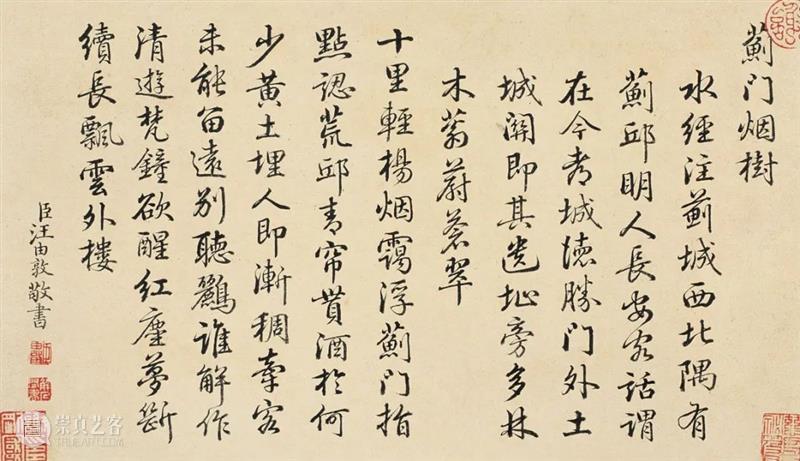 薊門烟樹
水經注薊城西北隅有
薊邱明人長安客話謂
在今都城德勝門外土
城關即其遺址旁多林
木蓊蔚蒼翠
十里輕楊烟靄浮薊門指
點認荒邱青帘貰酒於何
少黃土埋人即漸稠牽客
未能留遠別聽鸝誰解作
清遊梵鐘欲醒紅塵夢斷
續長飄雲外樓
臣汪由敦敬書
崇真艺客